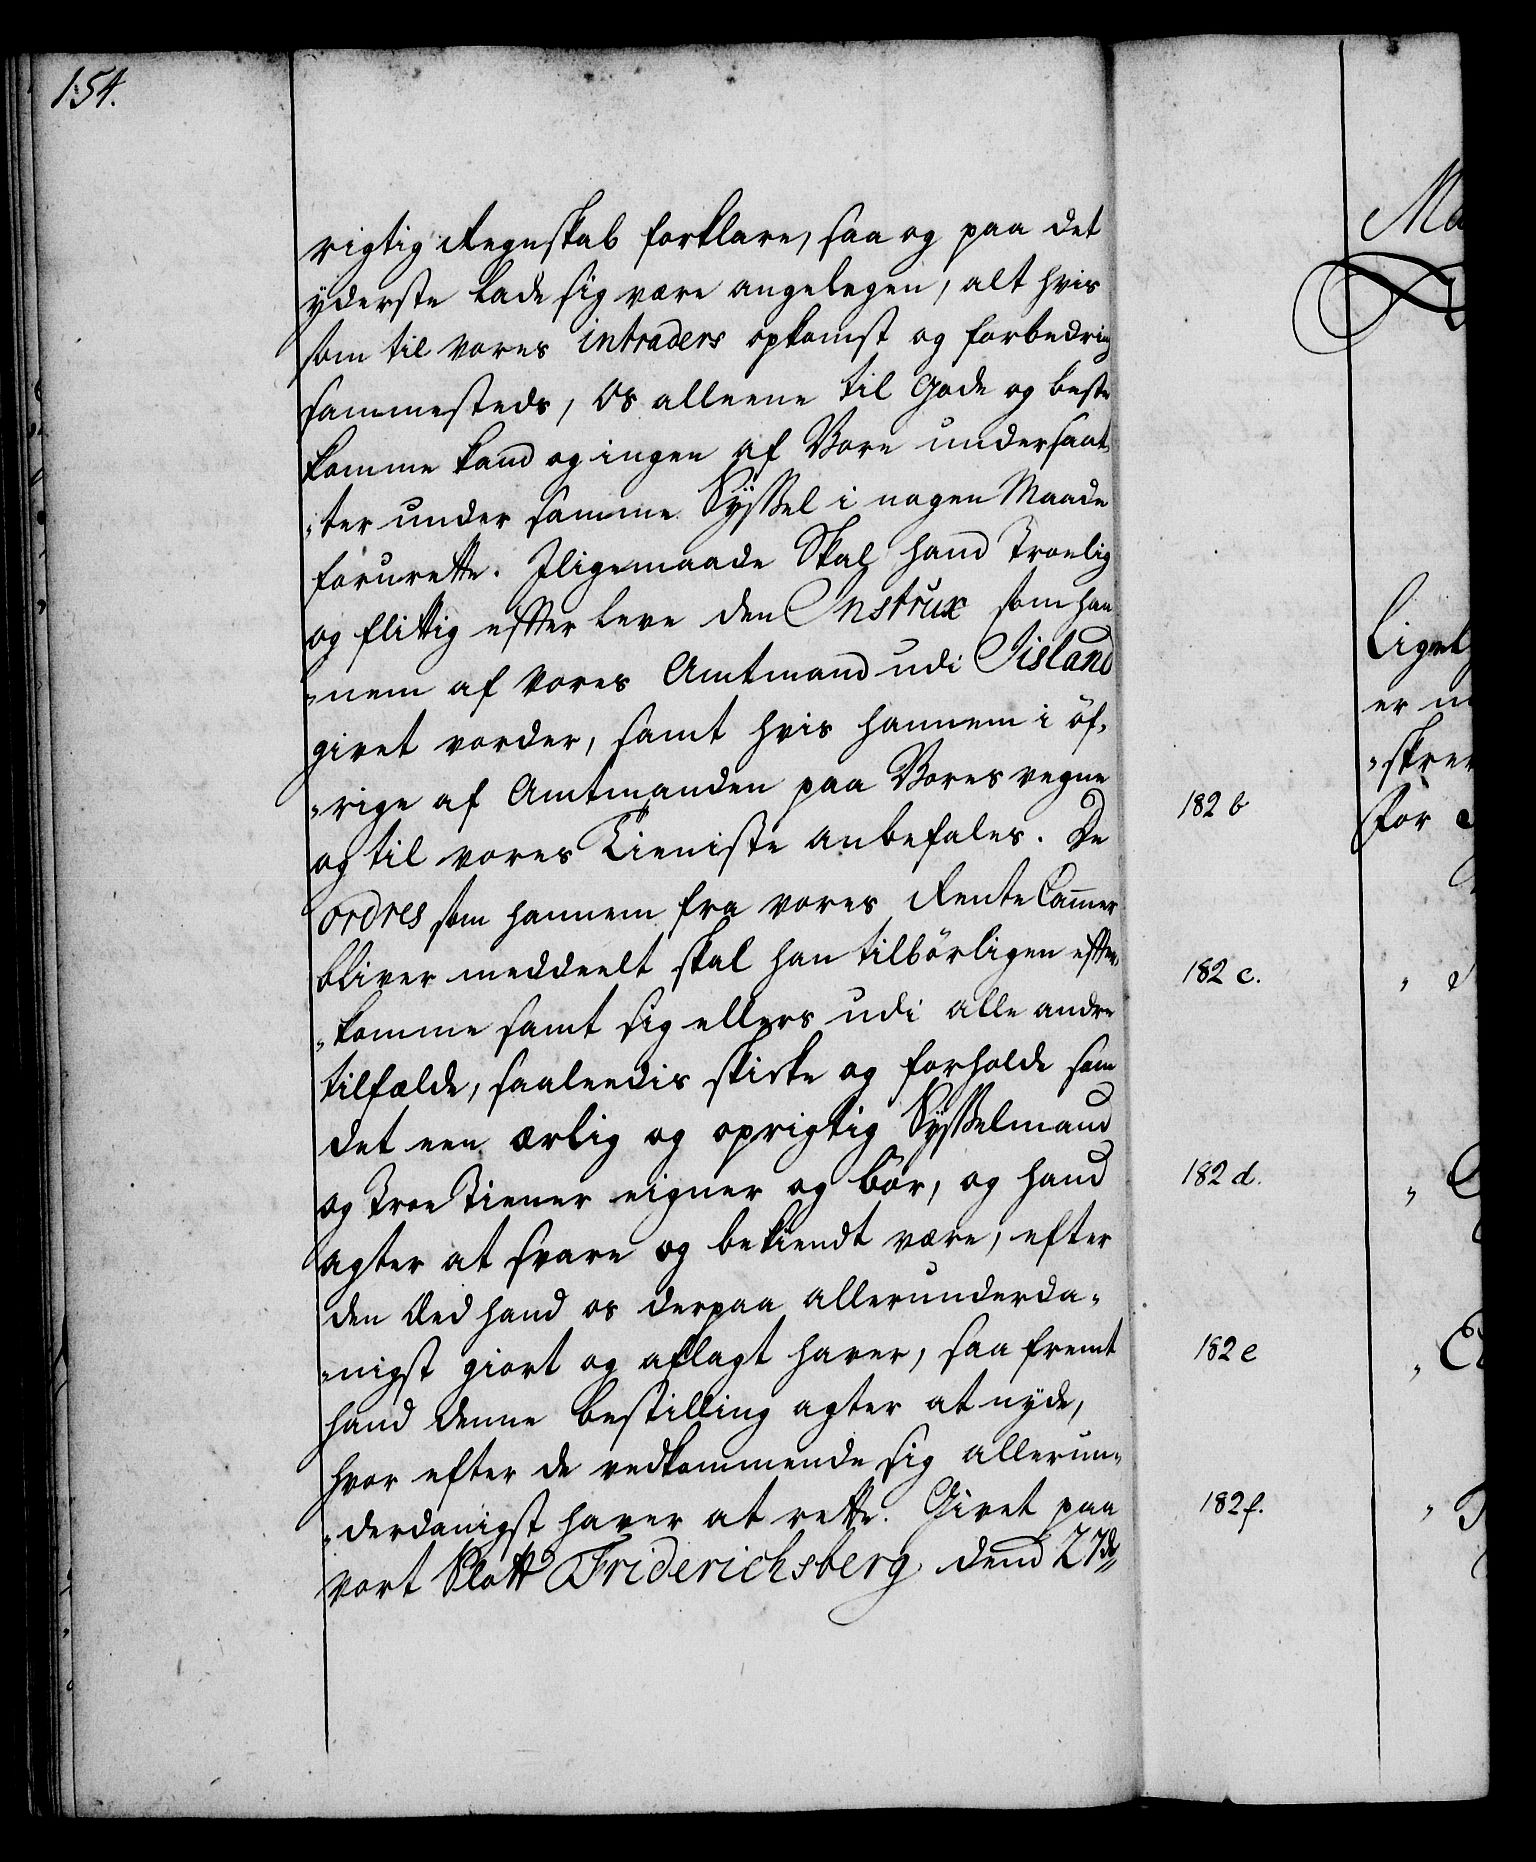 154.
rigtig Regnskab forklare, saa og paa det
yderste lade sig være angelegen, alt hvis
som til vores intraders opkomst og forbedring
sammesteds, Os alleene til Gode og beste
komme kand og ingen af Vore undersaat-
„ter under samme Sÿssel i nogen Maade
forurette. Iligemaade Skal hand Troelig
og flittig effter leve den Instrux som han-
„nem af vores Amtmand udi Iisland
givet vorder, samt hvis hannem i öf-
„rige af Amtmanden paa Vores vegne
og til vores Tieniste anbefales. De
ordres som hannem fra vores Rente Camer
bliver meddeelt skal han tilbörligen effter-
„komme samt sig ellers udi alle andre
tilfælde, saaleedis skikke og forholde som
det een ærlig og oprigtig Sÿsselmand
og Troe Tiener eigner og bör, og hand
agter at svare og bekiendt være, efter
den Eed hand os derpaa allerunderda-
„nigst giort og aflagt haver, saa fremt
hand denne bestilling agter at nyde,
hvor efter de vedkommende sig allerun-
„derdanigst haver at rette. Givet paa
vort Slott Friderichsberg dend 27de
182 b
182 c.
182 d.
182 e
182 f.
Ma
Liget
er
„skrev
for